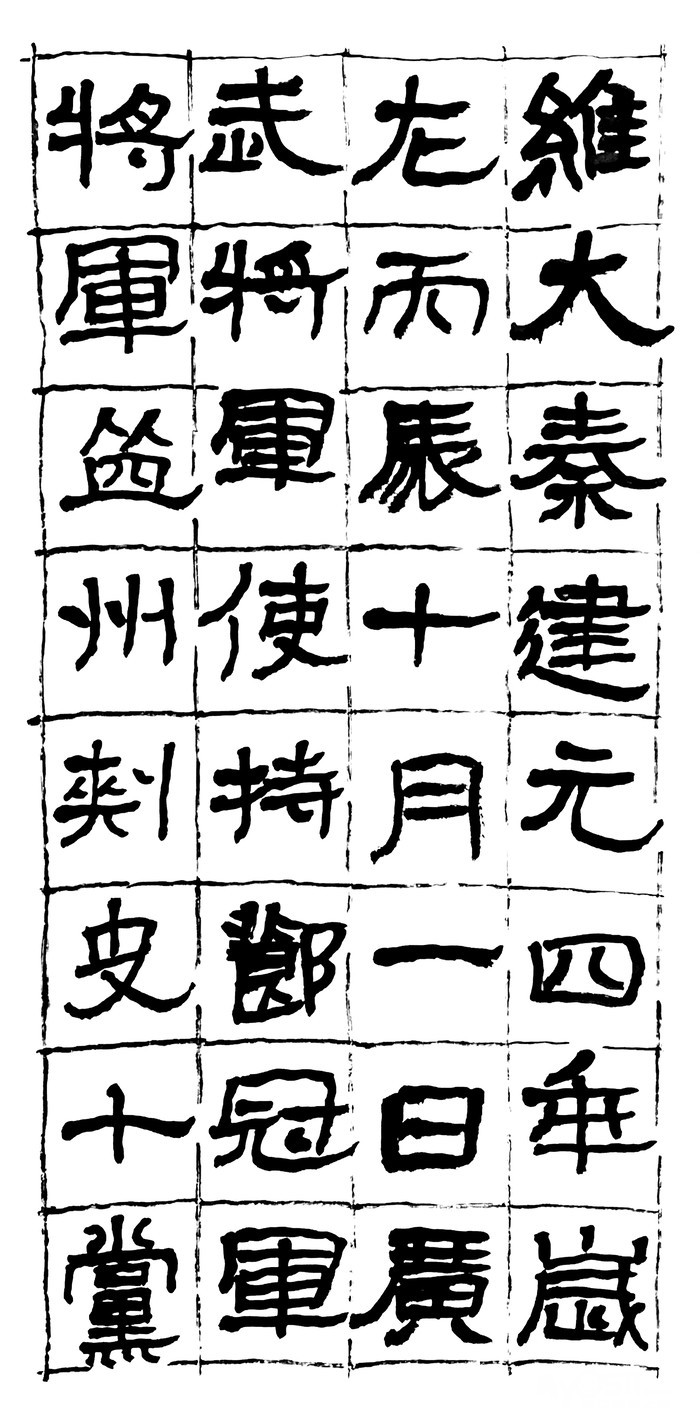 維大秦建元四年歲
在丙辰十月一日廣
武將軍使持節冠軍
將軍益州刺史十黨